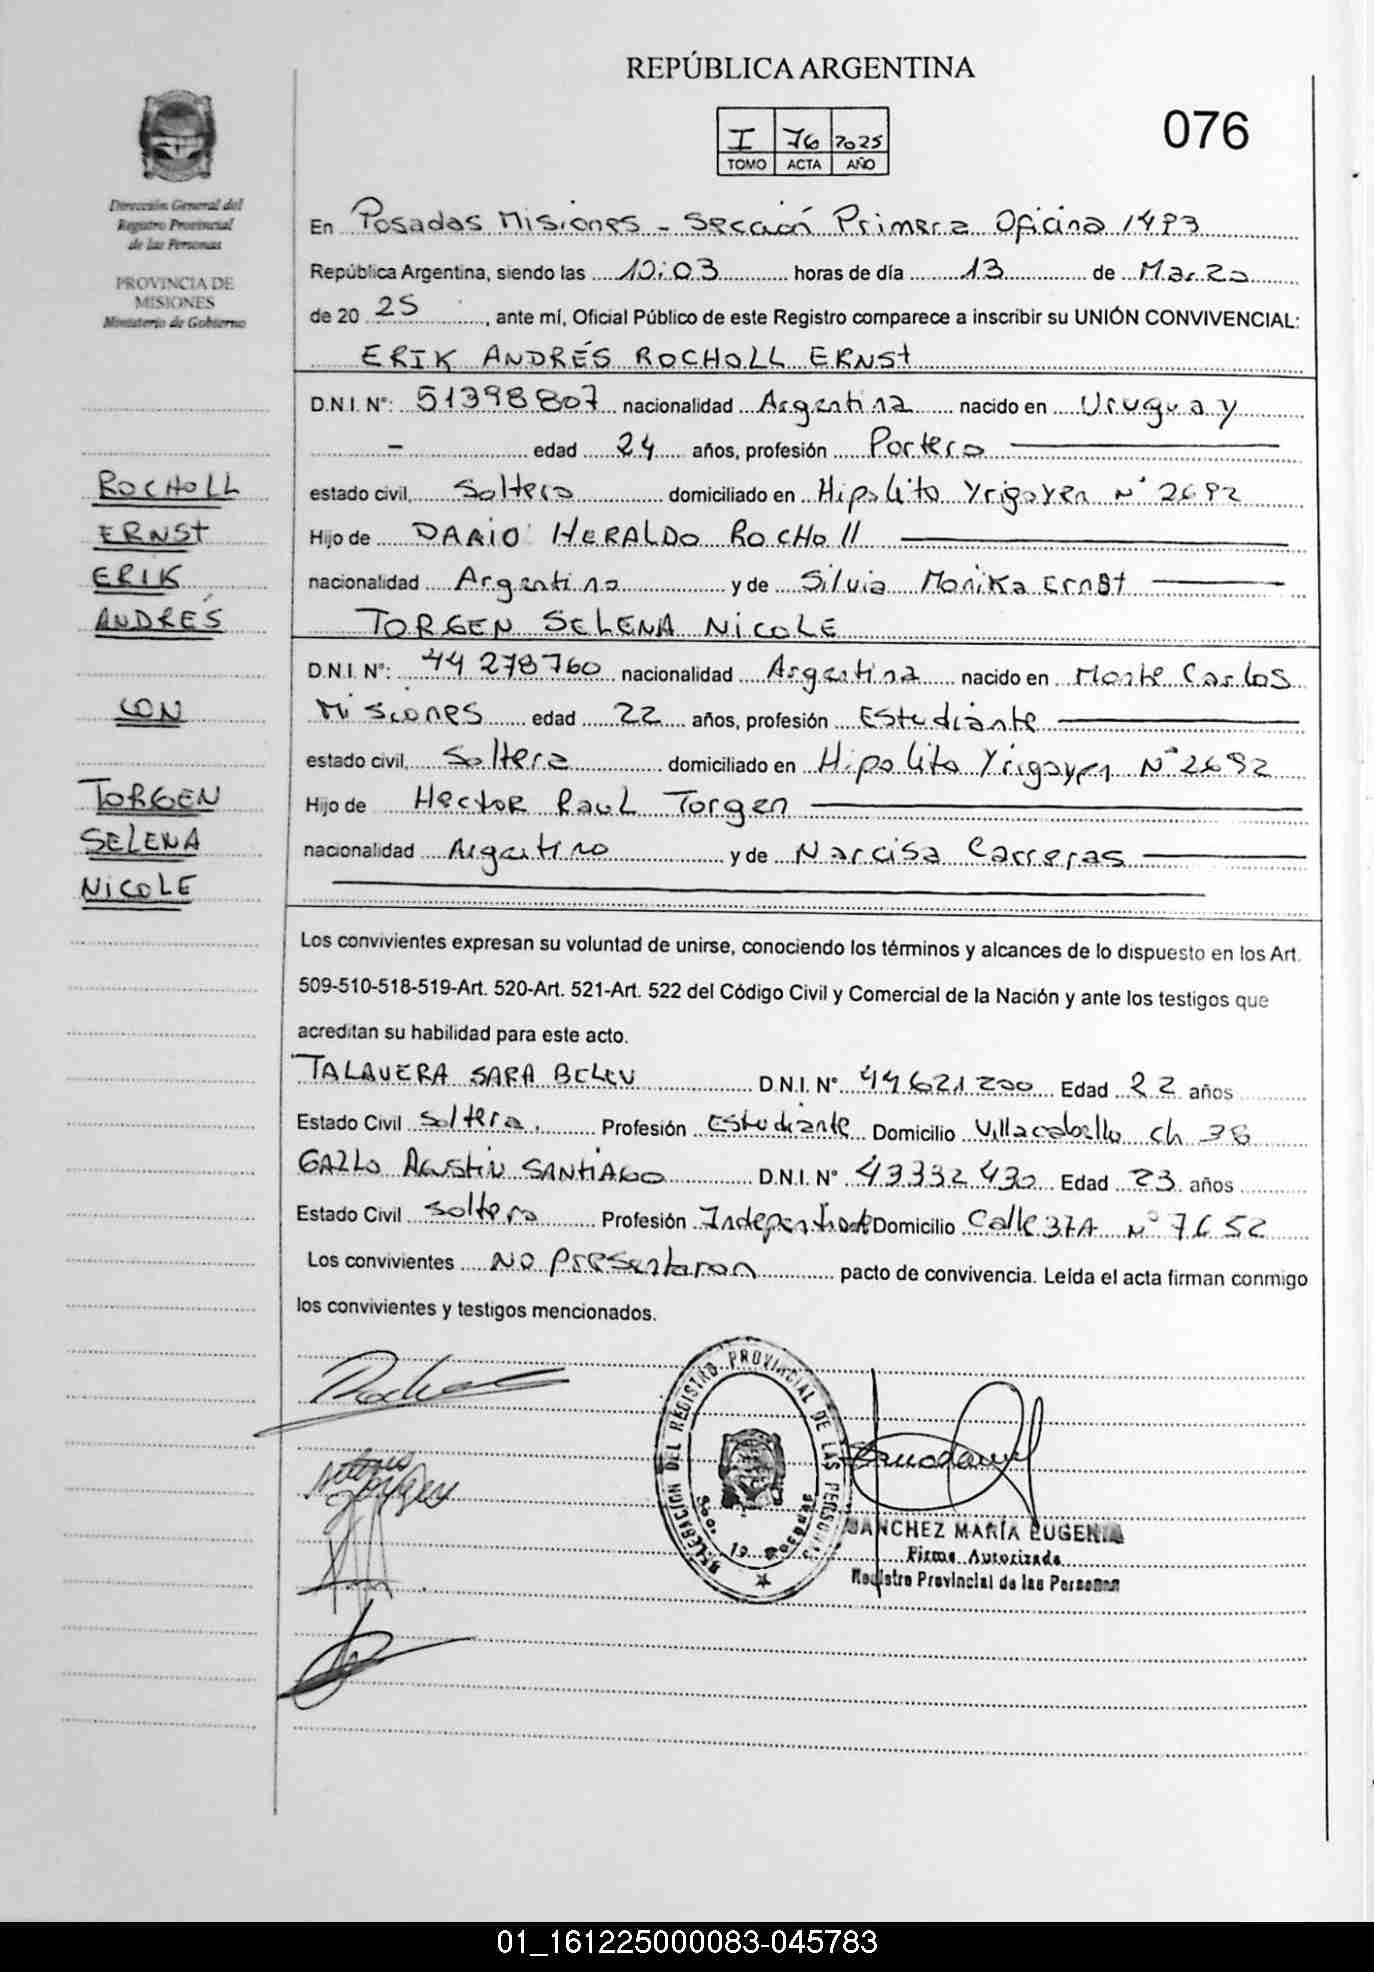 REPÚBLICA ARGENTINA
076
I 76 2025
TOMO ACTA AÑO
Dirección General del
Registro Provincial
de las Personas
PROVINCIA DE
MISIONES
Ministerio de Gobierno
En Posadas Misiones - Sección Primera Oficina 1493
República Argentina, siendo las 10:03 horas de día 13 de Marzo
de 20 25, ante mí, Oficial Público de este Registro comparece a inscribir su UNIÓN CONVIVENCIAL:
ERIK ANDRÉS ROCHOLL ERNSt
D.N.I. N°: 51398807 nacionalidad Argentina nacido en Uruguay
- edad 24 años, profesión Portero
estado civil, Soltero domiciliado en Hipolito Yrigoyen N° 2692
Hijo de DARIO HERALDO ROCHOll
nacionalidad Argentino y de Silvia Monika Ernst
TORGEN SELENA NICOLE
D.N.I. N°: 44 278760 nacionalidad Argentina nacido en Monte Carlos
Misiones edad 22 años, profesión Estudiante
estado civil, Soltera domiciliado en Hipolito Yrigoyen N° 2692
Hijo de Hector Raul Torgen
nacionalidad Argentino y de Narcisa Carreras
ROCHOLL
ERNSt
ERIK
ANDRÉS
CON
TORGEN
SELENA
NICOLE
Los convivientes expresan su voluntad de unirse, conociendo los términos y alcances de lo dispuesto en los Art.
509-510-518-519-Art. 520-Art. 521-Art. 522 del Código Civil y Comercial de la Nación y ante los testigos que
acreditan su habilidad para este acto.
TALAVERA SARA BELEN D.N.I. N° 44621200 Edad 22 años
Estado Civil Soltera, Profesión Estudiante Domicilio Villacabello ch 38
GALLO AGUSTIN SANTIAGO D.N.I. N° 43332430 Edad 23 años
Estado Civil Soltero Profesión Domicilio Calle 37A N° 7652
Los convivientes NO Presentaron pacto de convivencia. Leída el acta firman conmigo
los convivientes y testigos mencionados.
DELEGACION DEL REGISTRO PROVINCIAL DE LAS PERSONAS
Posadas
SANCHEZ MARÍA EUGENIA
Firma Autorizada
Registro Provincial de las Personas
01_161225000083-045783